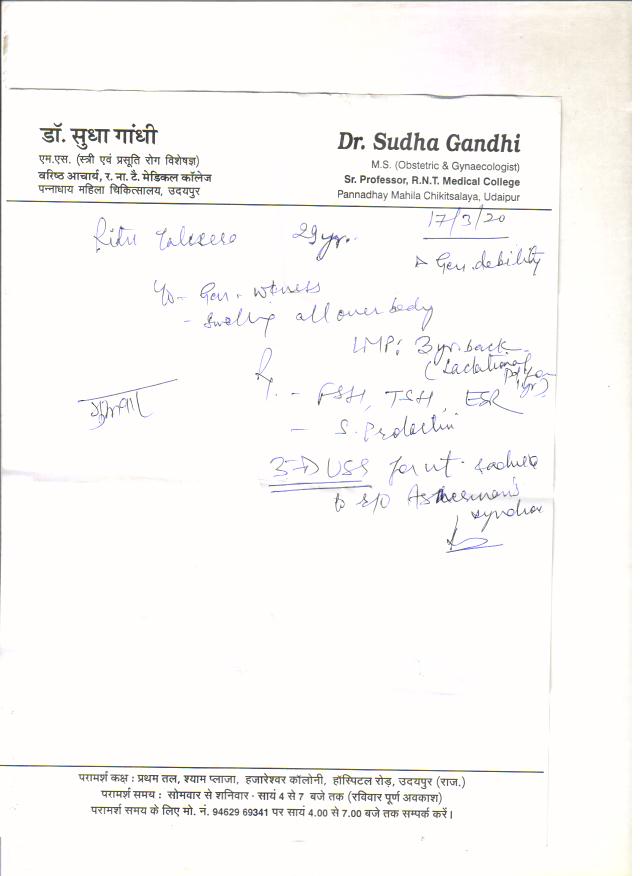 डॉ. सुधा गांधी
एम.एस. (स्त्री एवं प्रसूति रोग विशेषज्ञ)
वरिष्ठ आचार्य, र. ना. टै. मेडिकल कॉलेज
पन्नाधाय महिला चिकित्सालय, उदयपुर
Dr. Sudha Gandhi
M.S. (Obstetric & Gynaecologist)
Sr. Professor, R.N.T. Medical College
Pannadhay Mahila Chikitsalaya, Udaipur
17/3/20
29 yr.
Gen. debility
Gen. wkness
- Swelling all over body
LMP: 3 yr. back
(Lactational
- FSH, TSH, ESR
- S. Prolactin
3-D USS for ut.
to r/o Asherman's
परामर्श कक्ष : प्रथम तल, श्याम प्लाजा, हजारेश्वर कॉलोनी, हॉस्पिटल रोड़, उदयपुर (राज.)
परामर्श समय : सोमवार से शनिवार - सायं 4 से 7 बजे तक (रविवार पूर्ण अवकाश)
परामर्श समय के लिए मो. नं. 94629 69341 पर सायं 4.00 से 7.00 बजे तक सम्पर्क करें।